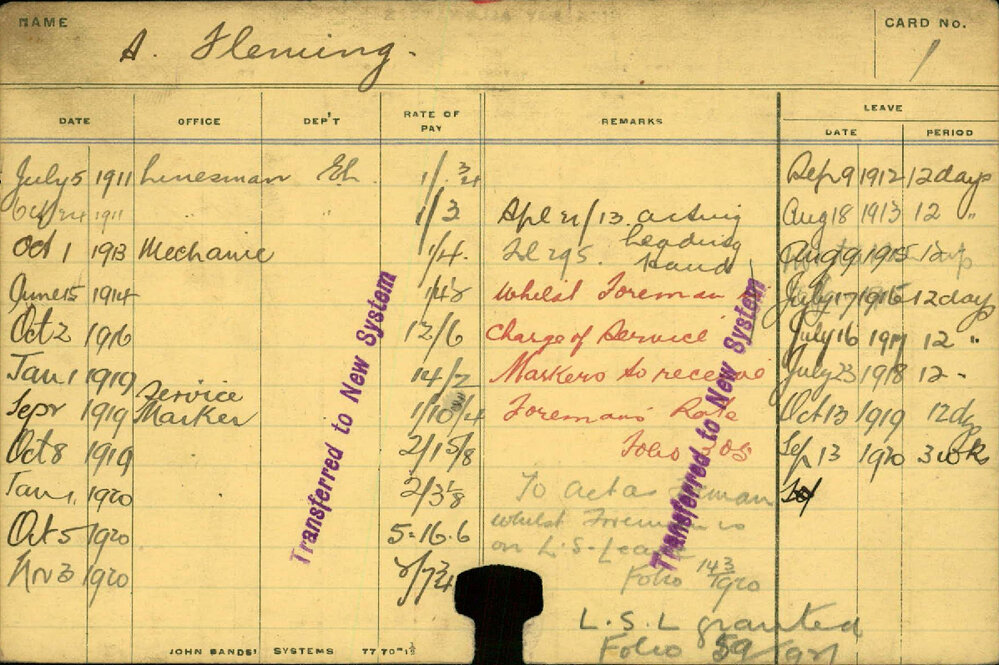 NAME A. Fleming. CARD No. 1
DATE OFFICE DEP'T RATE OF PAY REMARKS LEAVE
DATE PERIOD
July 5 1911 Linesman El. 1/- 3/4 Sep 9 1912 12 days
Oct 24 1911 " " 1/3 Apl 21/13 acting Aug 18 1913 12 "
Oct 1 1913 Mechanic 1/4. Leading Hand Aug 1915 12
June 15 1914 whilst Foreman July 17 1916 12 days
Oct 2 1916 12/6 charge of Service July 16 1917 12 "
Jan 1 1919 14/7 Markers to receive July 23 1918 12 -
Sepr 1919 Service Marker 1/10/4 Foreman's Rate Oct 13 1919 12 dys
Oct 8 1919 2/1 5/8 Folio 205 Sep 13 1920 3 wks
Jan 1. 1920 2/3 1/8 To act as
Oct 5 1920 5-16.6 whilst Foreman is
Nov 3 1920 2/7 3/4 on L.S. Leave
Folio 143/1920
L.S.L granted
Folio 59
Transferred to New System
Transferred to New System
JOHN SANDS' SYSTEMS